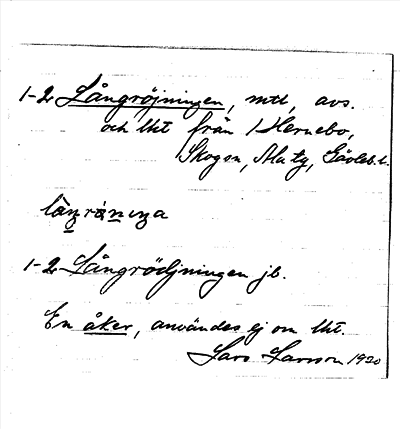 1-2 Långröjningen, mtl, avs.
och lht från 1 Hernebo,
Skogsn, Gävleb. l.
1-2 Långrödjningen jb.
En åker, användes ej om lht.
Lars Larsson 1920